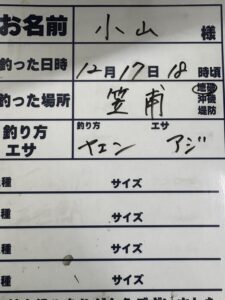 お名前 小山 様
釣った日時 12月17日18時頃
釣った場所 笠甫 地磯 沖磯 堤防
釣り方 エサ 釣り方 ヤエン エサ アジ
種 サイズ
種 サイズ
種 サイズ
種 サイズ